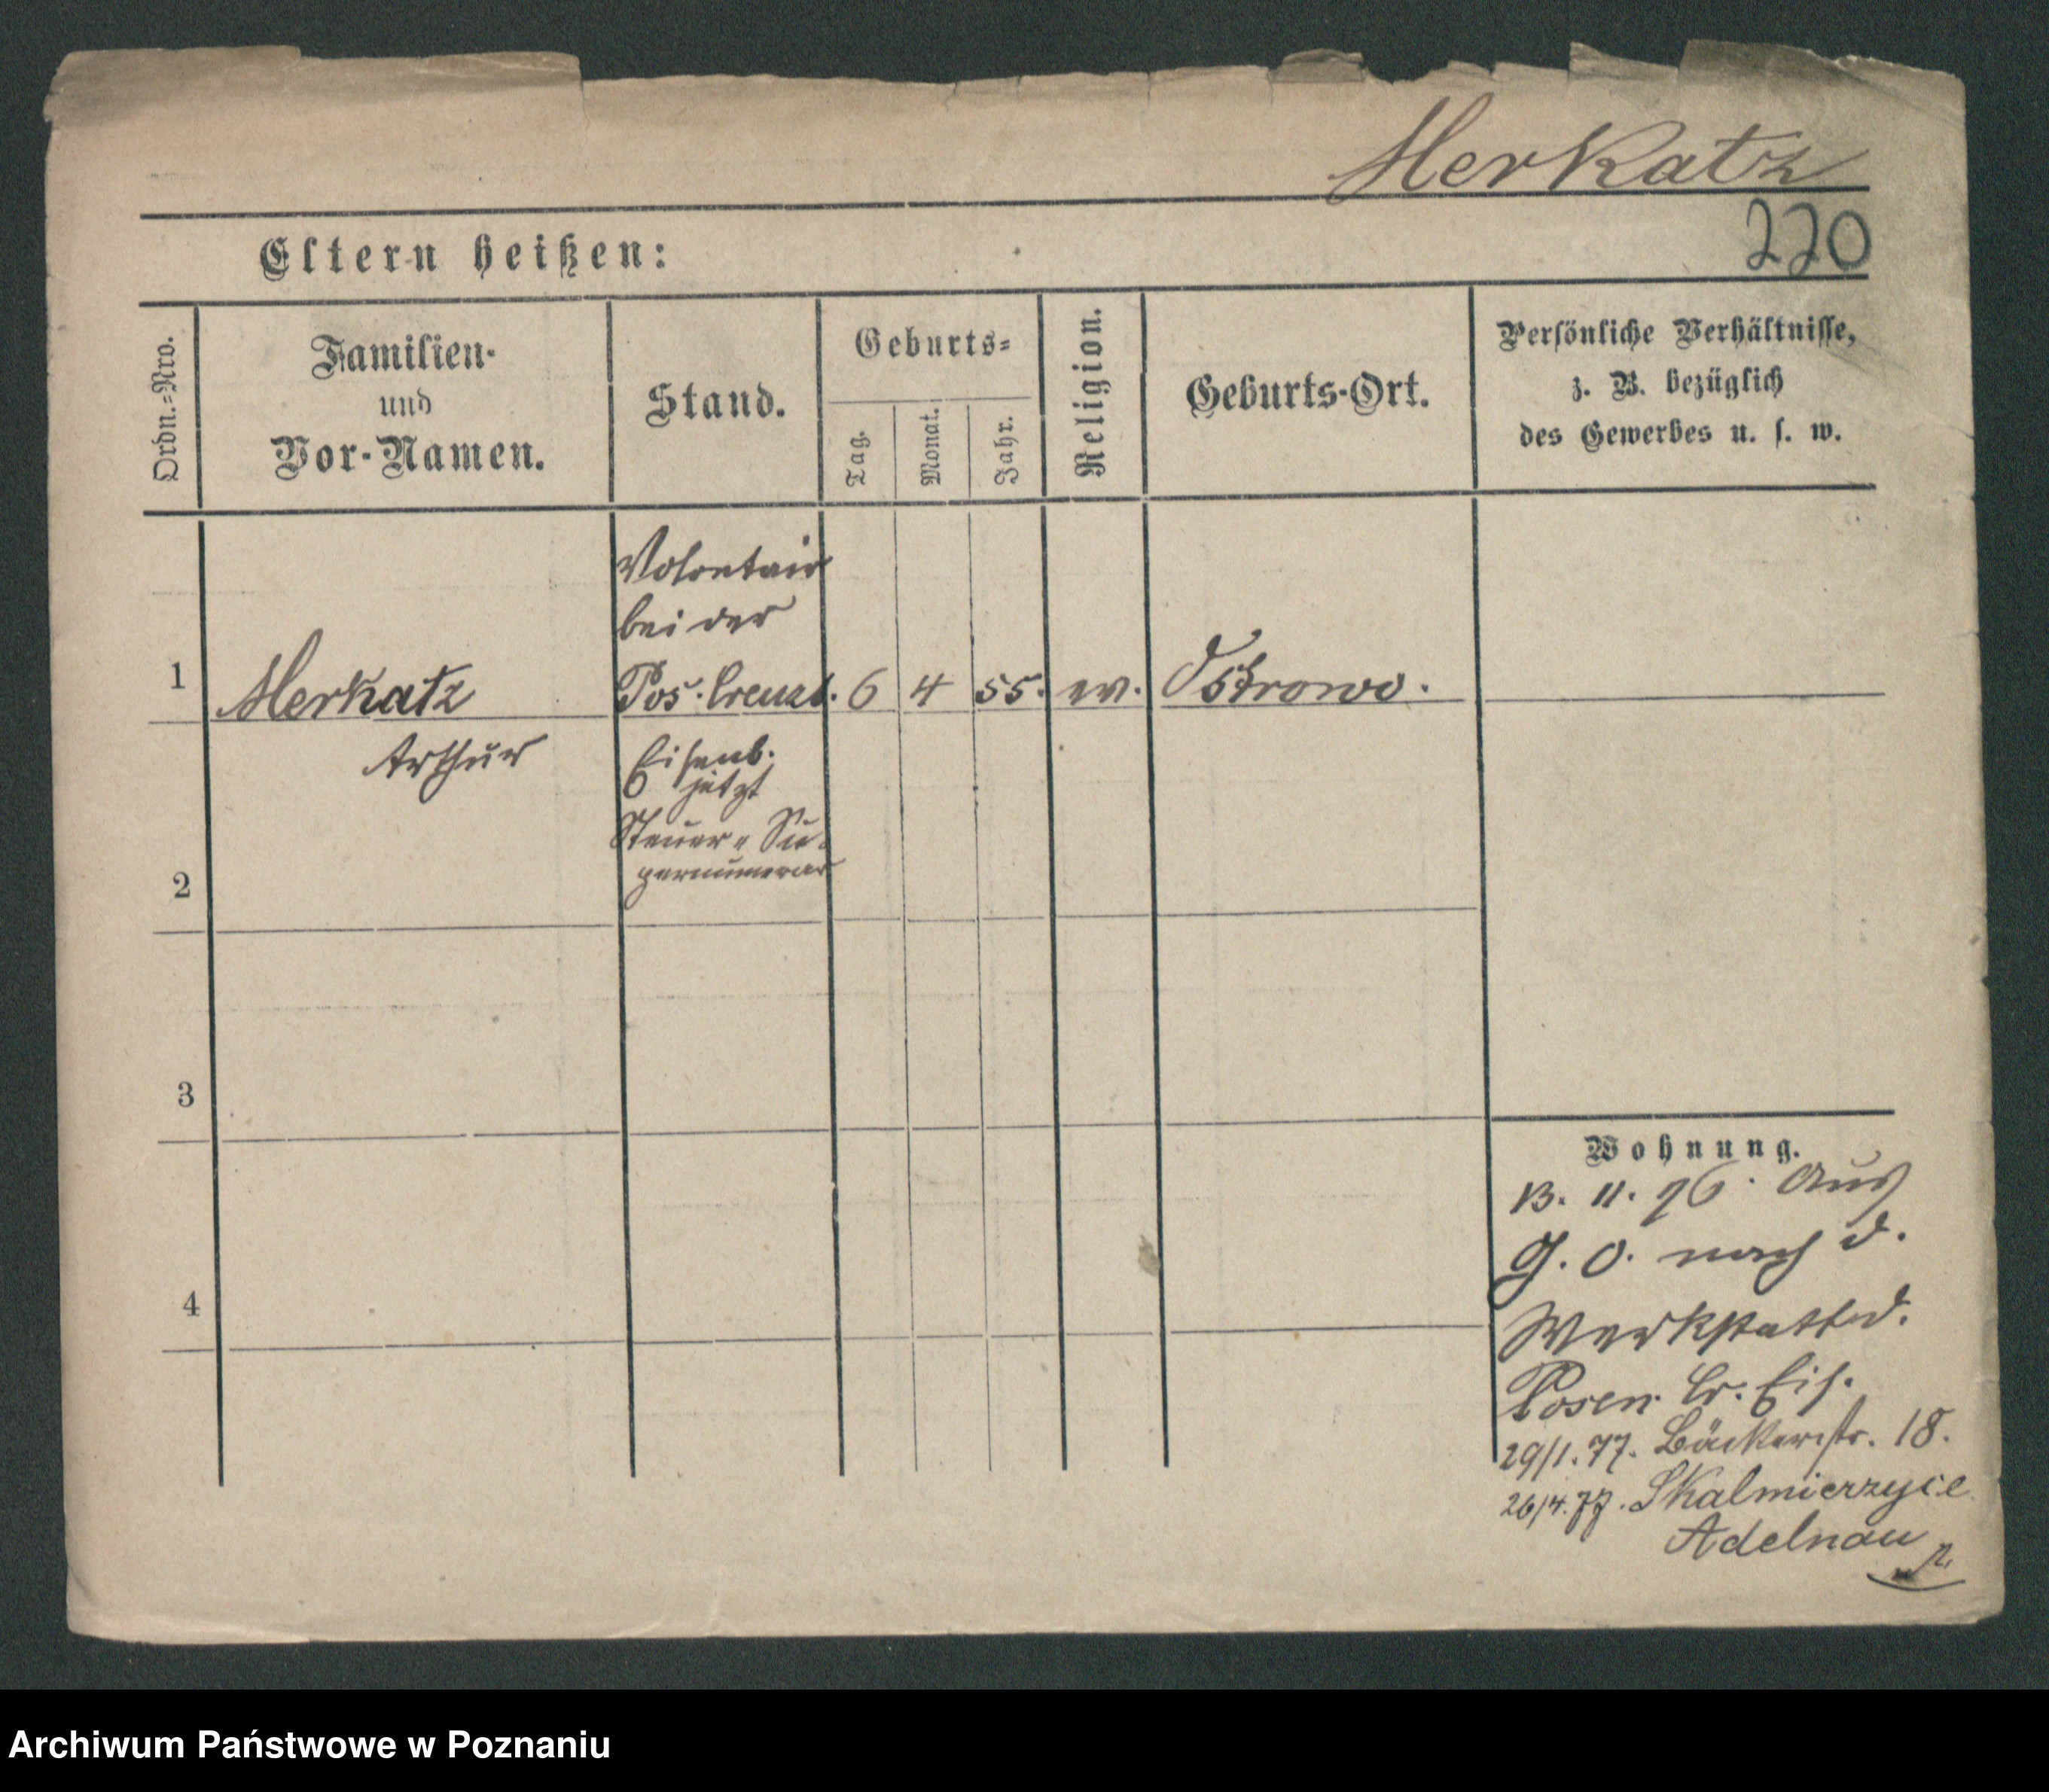 Merkatz
220
Eltern heißen:
Ordn.=Nro.
Familien-
und
Vor-Namen.
Stand.
Geburts=
Tag.
Monat.
Jahr.
Religion.
Geburts-Ort.
Persönliche Verhältnisse,
z. B. bezüglich
des Gewerbes u. s. w.
Volontair
bei der
1 Merkatz Pos. Creuzb. 6 4 55. ev. Ostrowo.
Arthur Eisenb.
jetzt
Steuer-Su-
pernumerar
2
3
4
Wohnung.
13. 11. 76. aus
G. O. nach d.
Werkstatt d.
Posen Cr. Eis.
29/1. 77. Bäckerstr. 18.
26/4. 77. Skalmierzyce
Adelnau
Archiwum Państwowe w Poznaniu